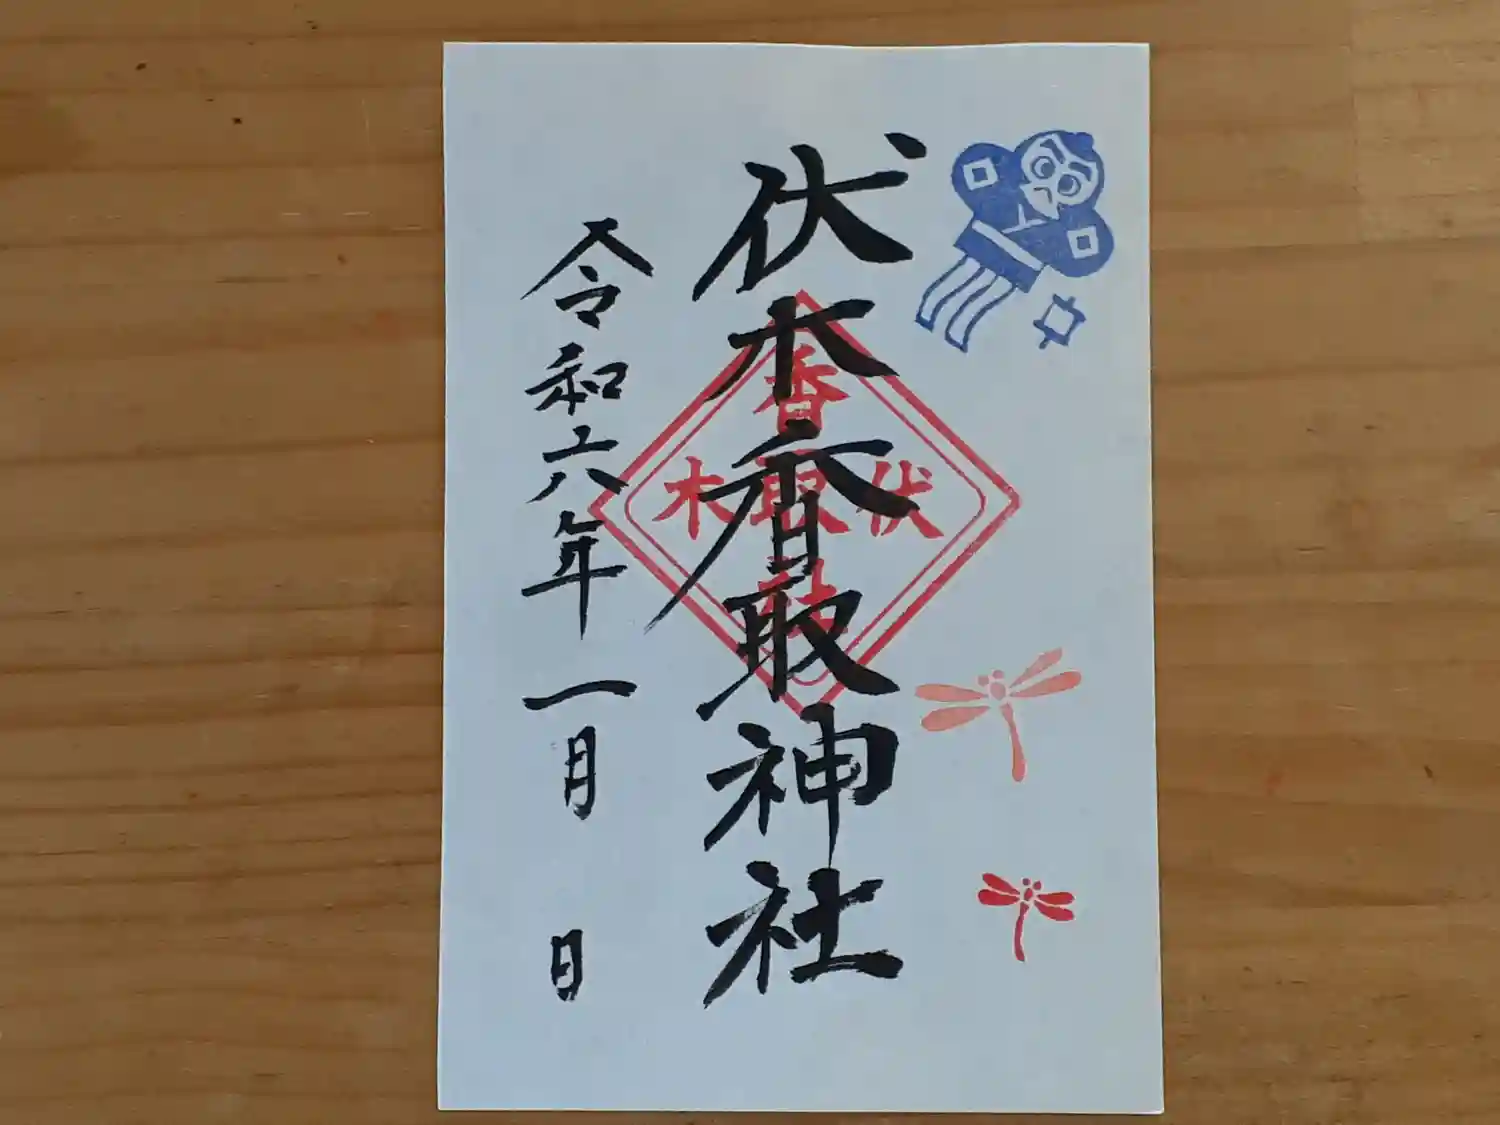 伏木香取神社
令和六年一月 日
伏木
香取神社